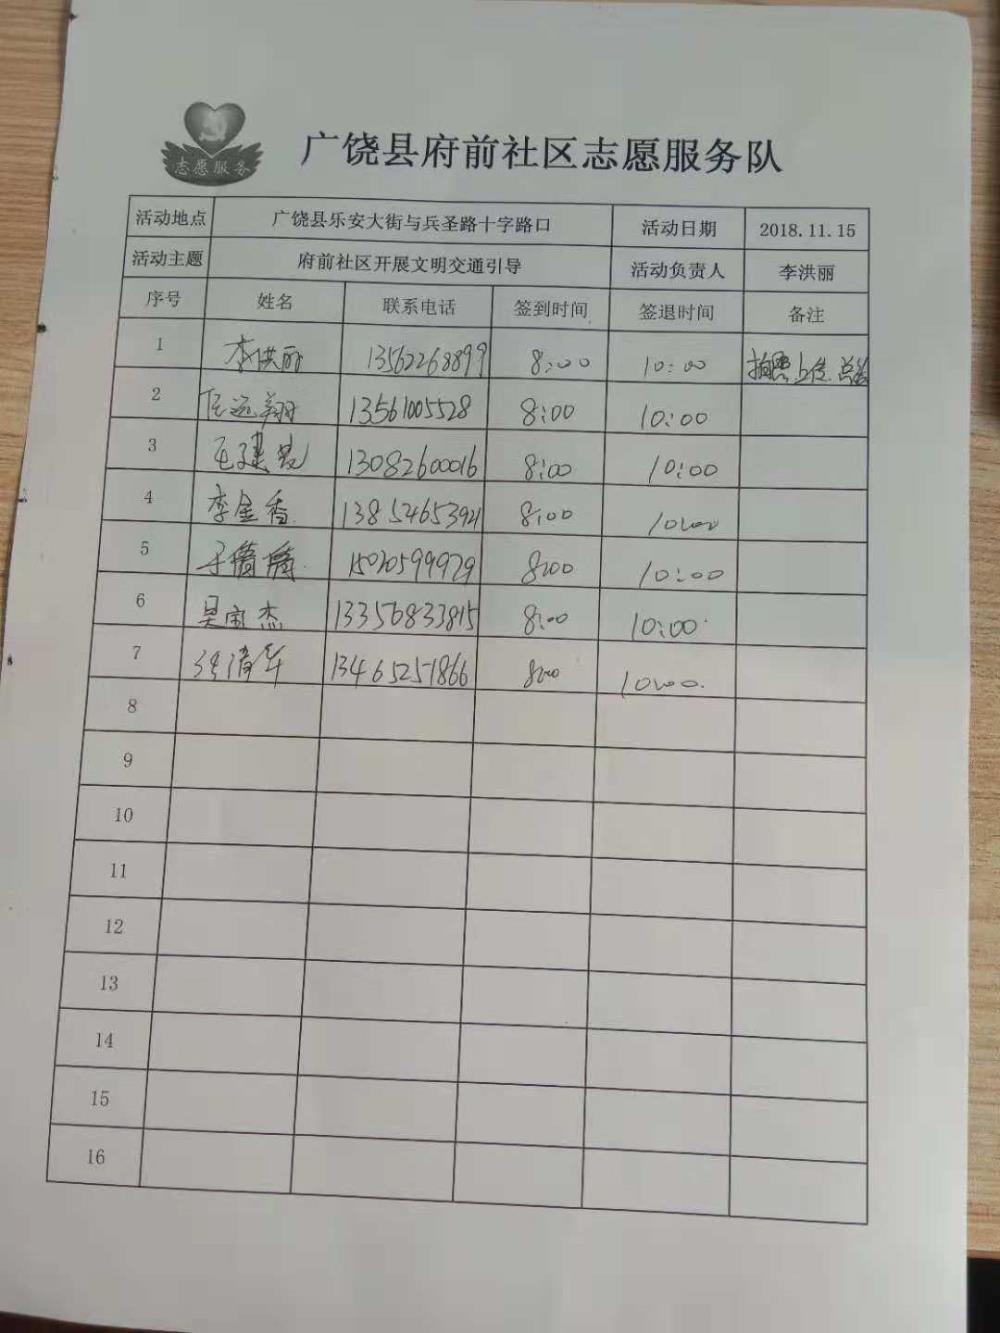 志愿服务
广饶县府前社区志愿服务队
活动地点 广饶县乐安大街与兵圣路十字路口 活动日期 2018.11.15
活动主题 府前社区开展文明交通引导 活动负责人 李洪丽
序号 姓名 联系电话 签到时间 签退时间 备注
1 李洪丽 13562268899 8:00 10:00 拍照上传.总结
2 任远翔 13561005528 8:00 10:00
3 13082600016 8:00 10:00
4 李金香 13854653921 8:00 10:00
5 15020599929 8:00 10:00
6 吴宝杰 13356833815 8:00 10:00
7 13465251866 8:00 10:00.
8
9
10
11
12
13
14
15
16